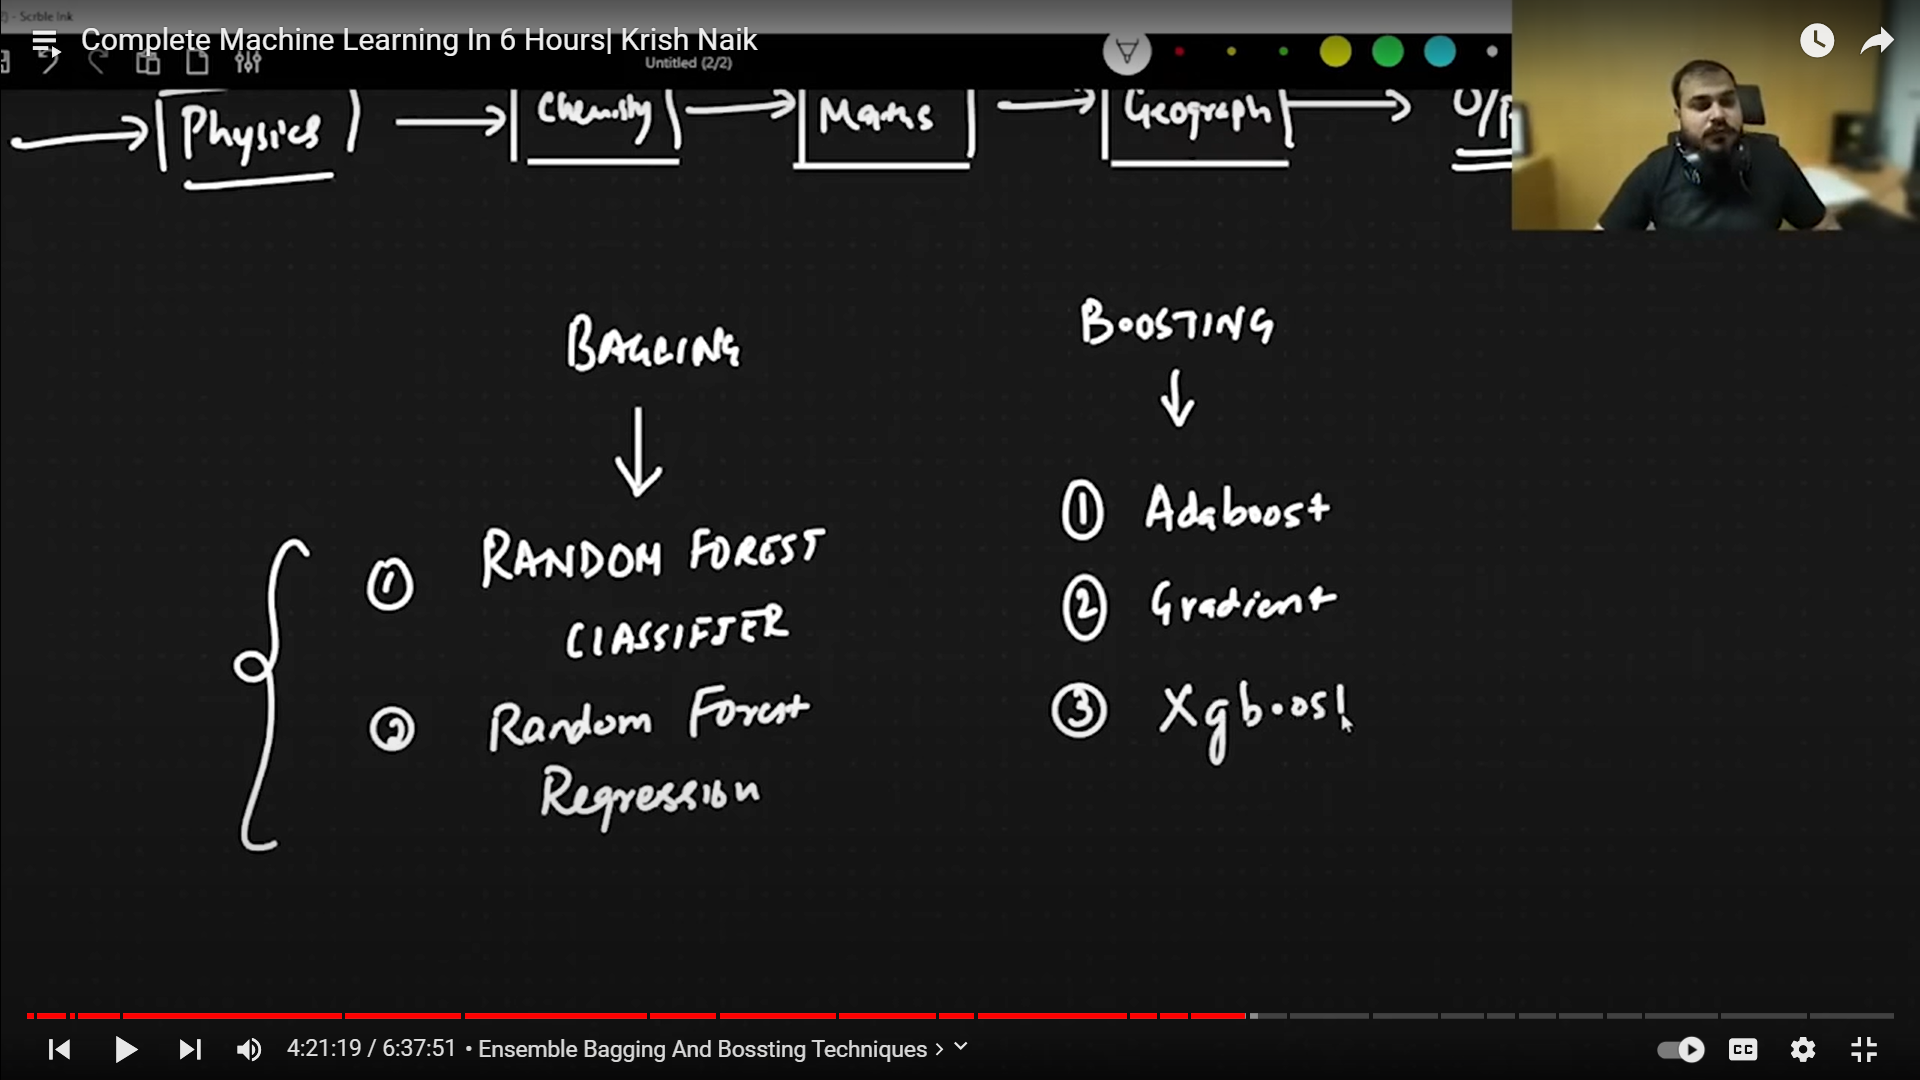 - Scrble Ink
Complete Machine Learning In 6 Hours| Krish Naik
Untitled (2/2)
Physics Chemisty Maths Geograph O/p
BAGGING BOOSTING
① RANDOM FOREST
CLASSIFIER
② Random Forest
Regression
① Adaboost
② Gradient
③ Xgboost
4:21:19 / 6:37:51 • Ensemble Bagging And Bossting Techniques
CC